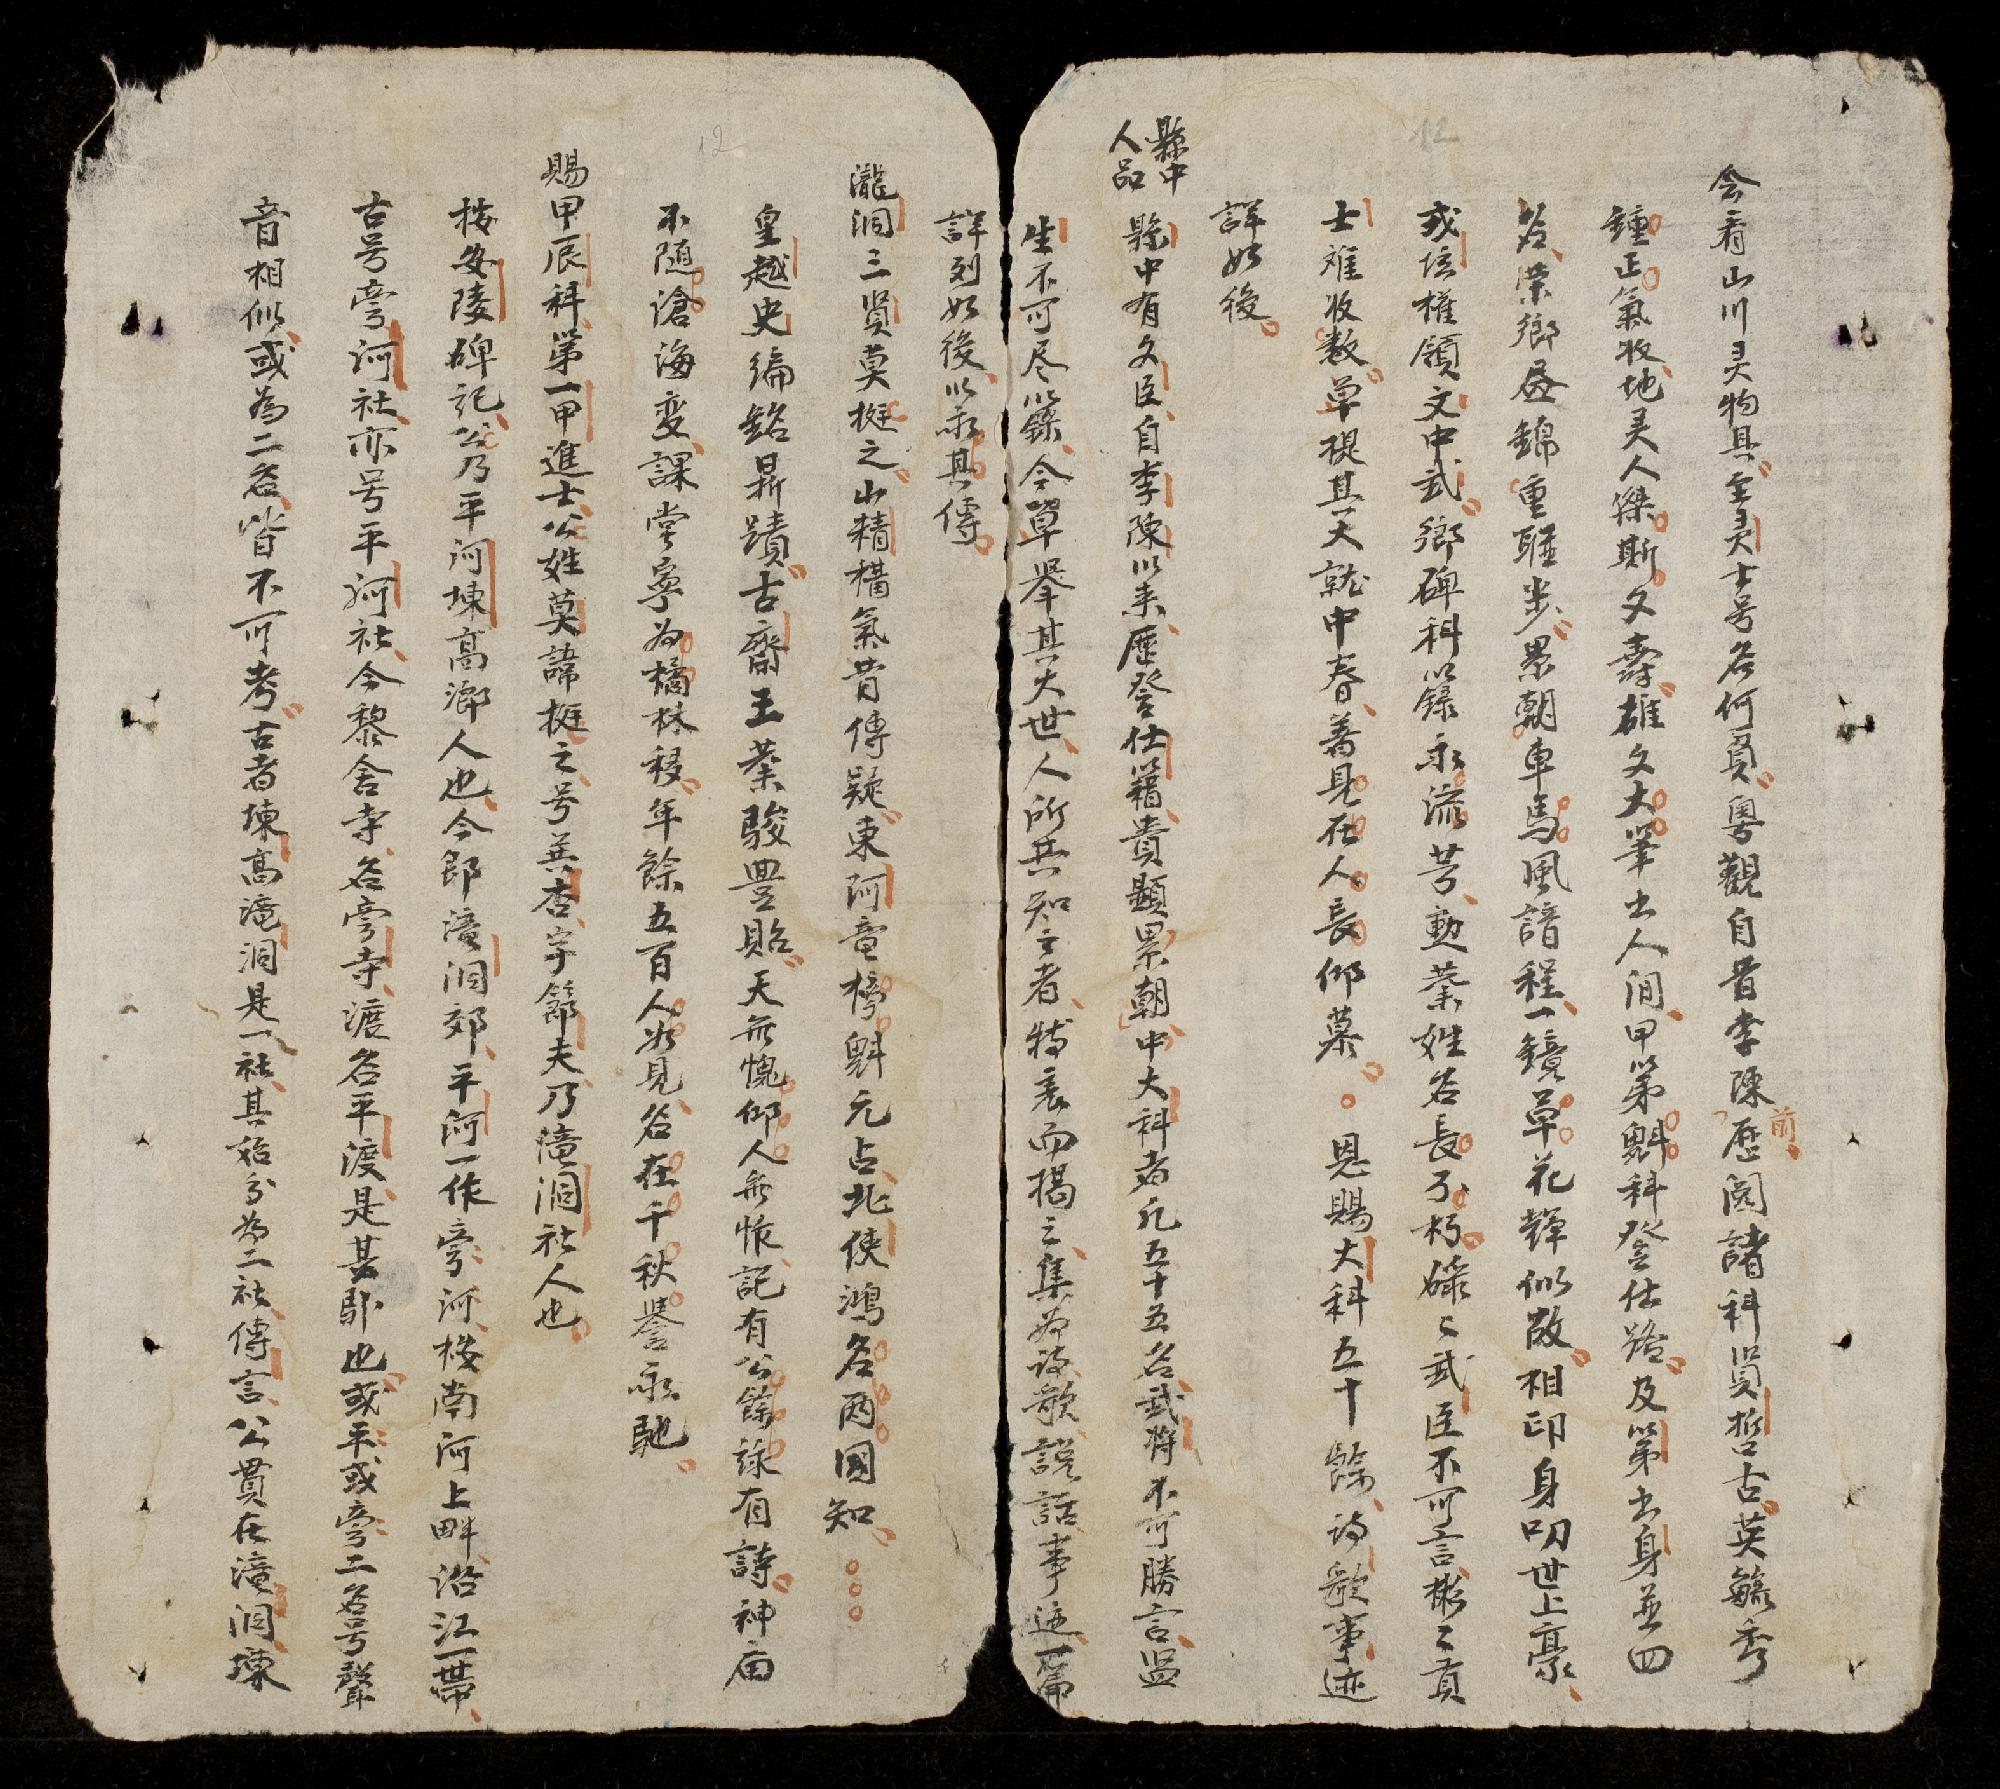 今看山川灵物具全灵士号名何員粵觀自昔李陳前歷閱諸科員哲古英毓秀
鍾正氣收地灵人傑斯文壽雄文大筆出人間甲第魁科登仕路及第出身並四
名崇鄉昼錦重聯步累朝車馬風諳程一鏡草花輝似啟相印身叨世上豪
或培權領文中武鄉碑科以錄永流芳勳業姓名長不朽碌〻武臣不可言彬〻貢
士难收数草提其大就中春着見在人長仰慕恩賜大科五十餘詩歌事迹
詳如後
縣中人品
縣中有文臣自李陳以来歷登仕籍貴顯累朝中大科者凡五十五名武將不可勝言监
生不可尽以錄今單举其大世人所共知之者特表而揭之集為詩歌説話事迹一篇
詳列如後以永其傳
瀧洞三賢莫挺之山精構氣昔傳疑東阿竜榜魁元占北使鴻名两國知
皇越史编銘鼎蹟古齋王業駿豊貽天無愧仰人無怍記有公餘录有詩神庙
不随滄海变課堂寧为橘林移年餘五百人如見名在千秋誉永馳
賜甲辰科第一甲進士公姓莫諱挺之号美杏字節夫乃瀧洞社人也
按安陵碑記公乃平河㙜高鄉人也今即瀧洞郊平河一作旁河按南河上畔沿江一帶
古号旁河社亦号平河社今黎舍寺名旁寺渡名平渡是其郡也或平或旁二名号聲
音相似或為二名皆不可考古者㙜高瀧洞是一社其始分為二社傳言公貫在瀧洞㙜